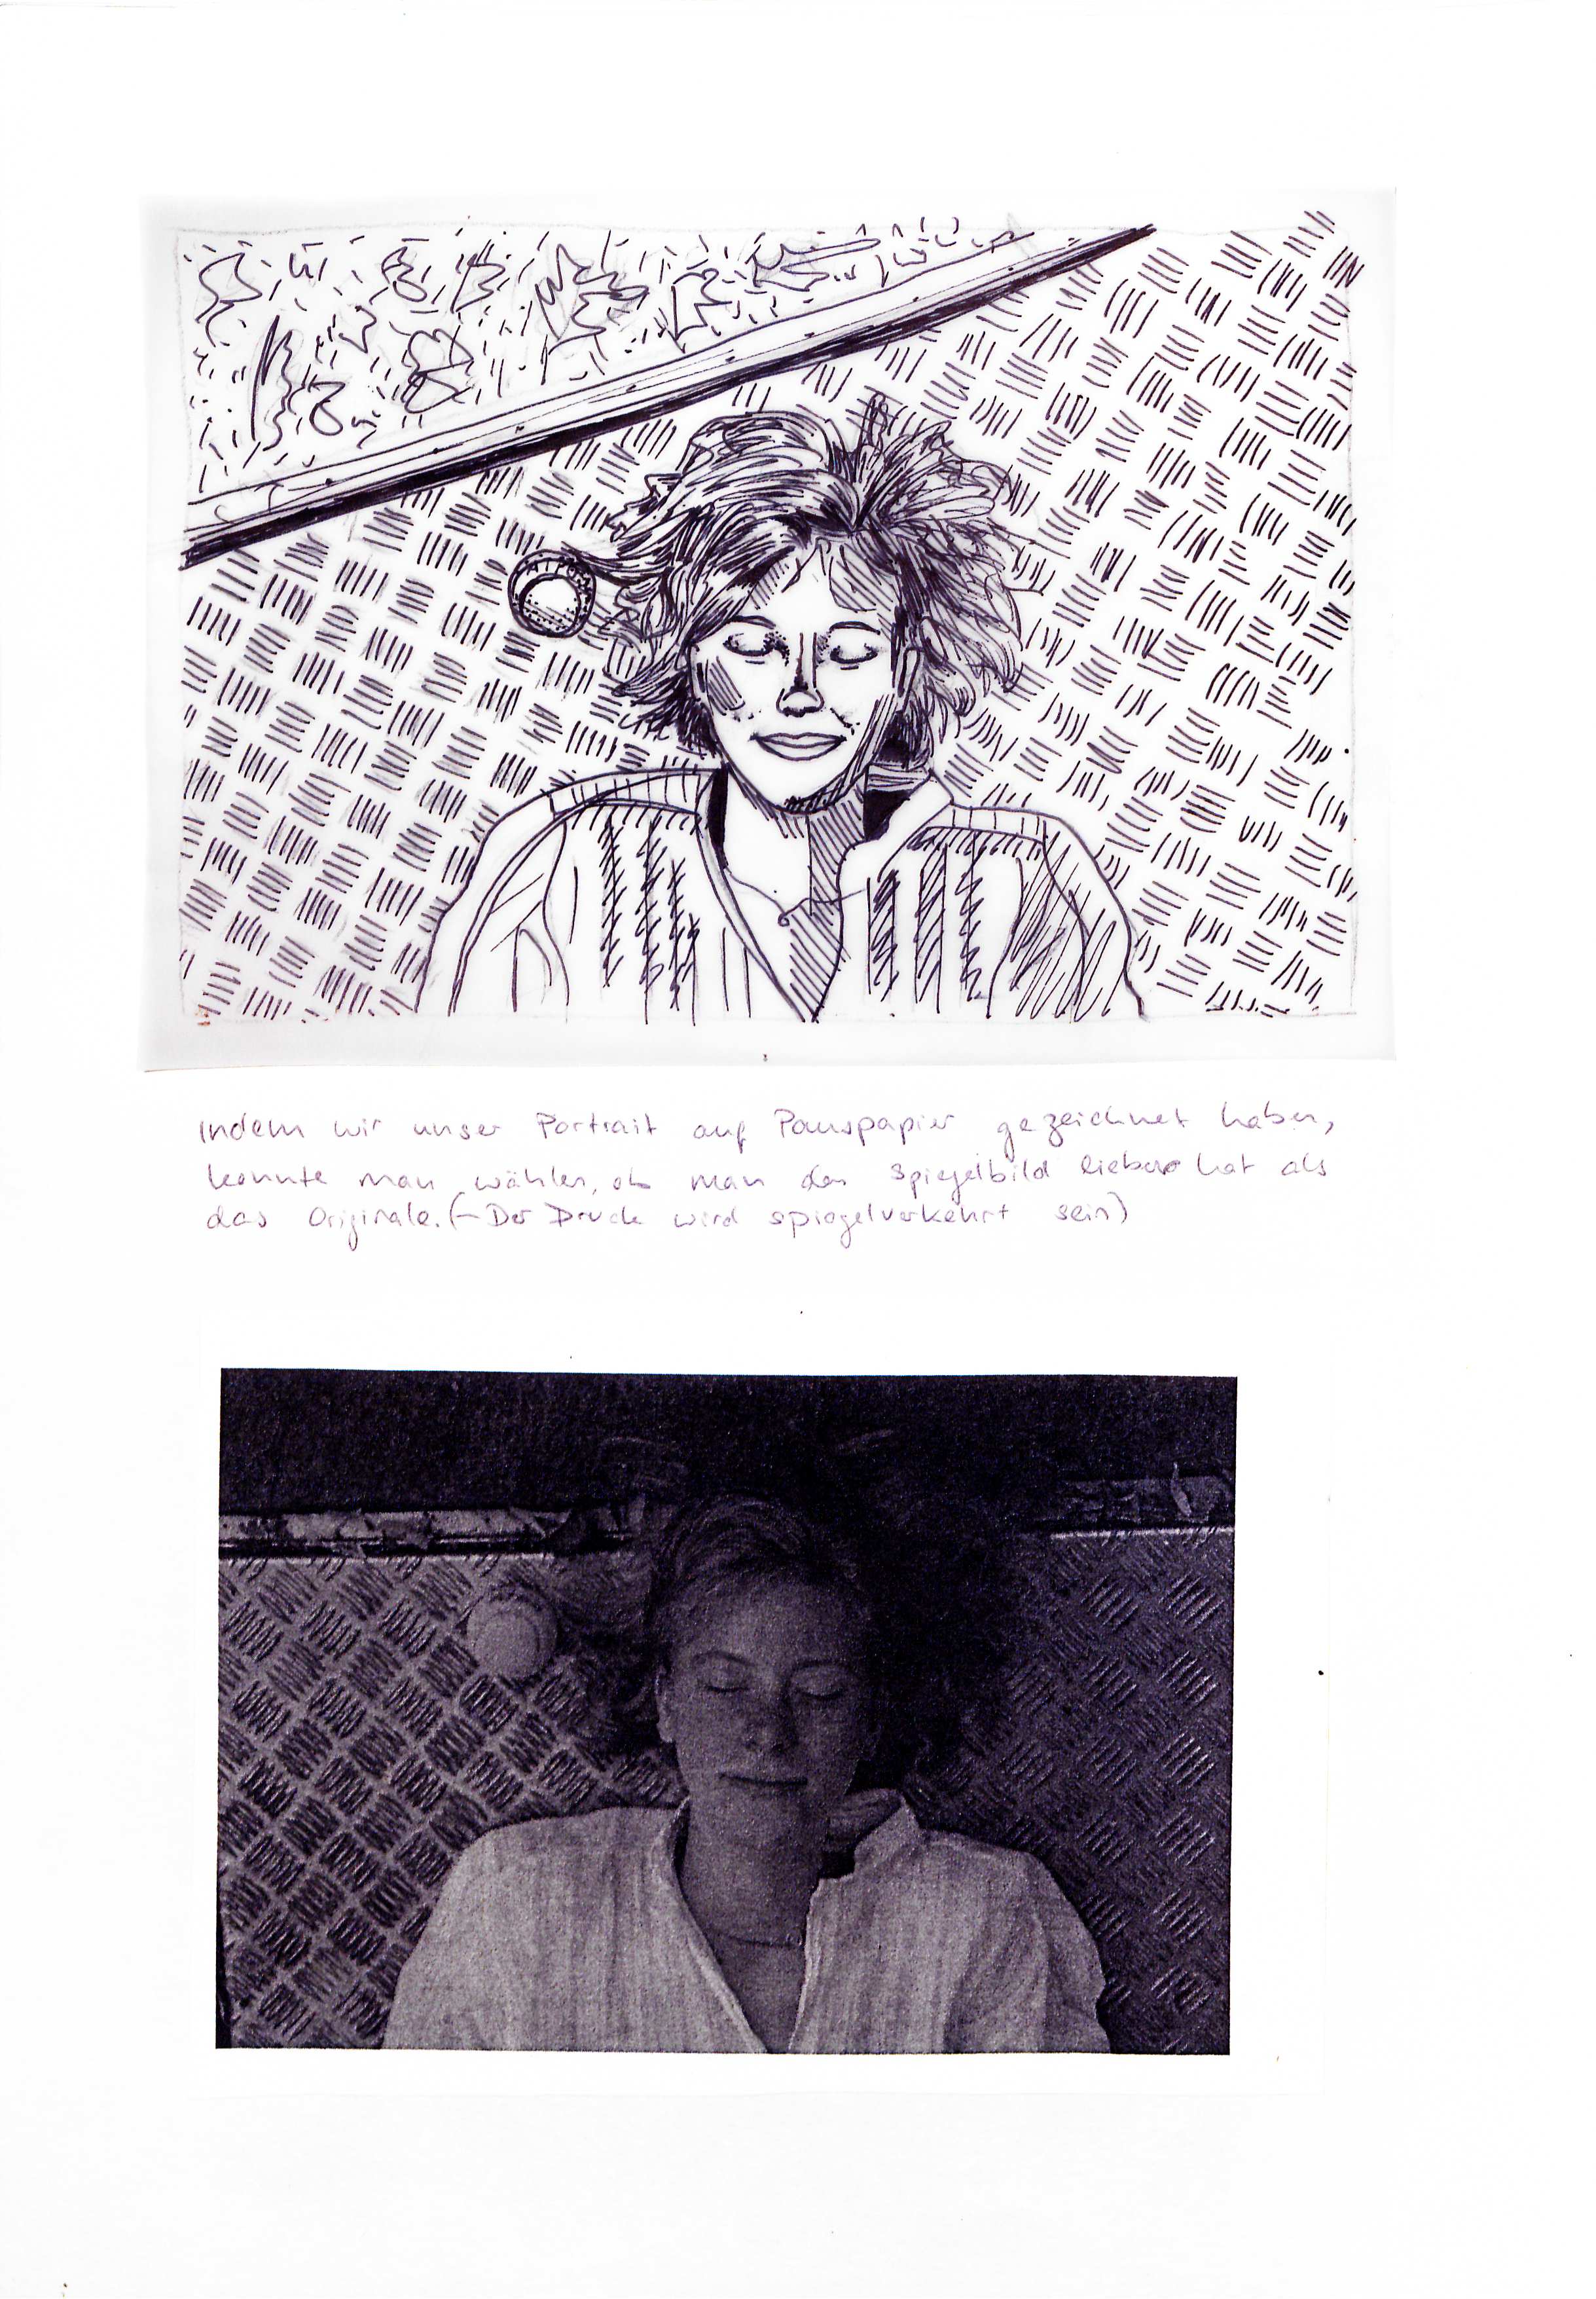 Indem wir unser Portrait auf Pauspapier gezeichnet haben,
konnte man wählen, ob man das Spiegelbild lieber hat als
das Originale. (→ Der Druck wird spiegelverkehrt sein)